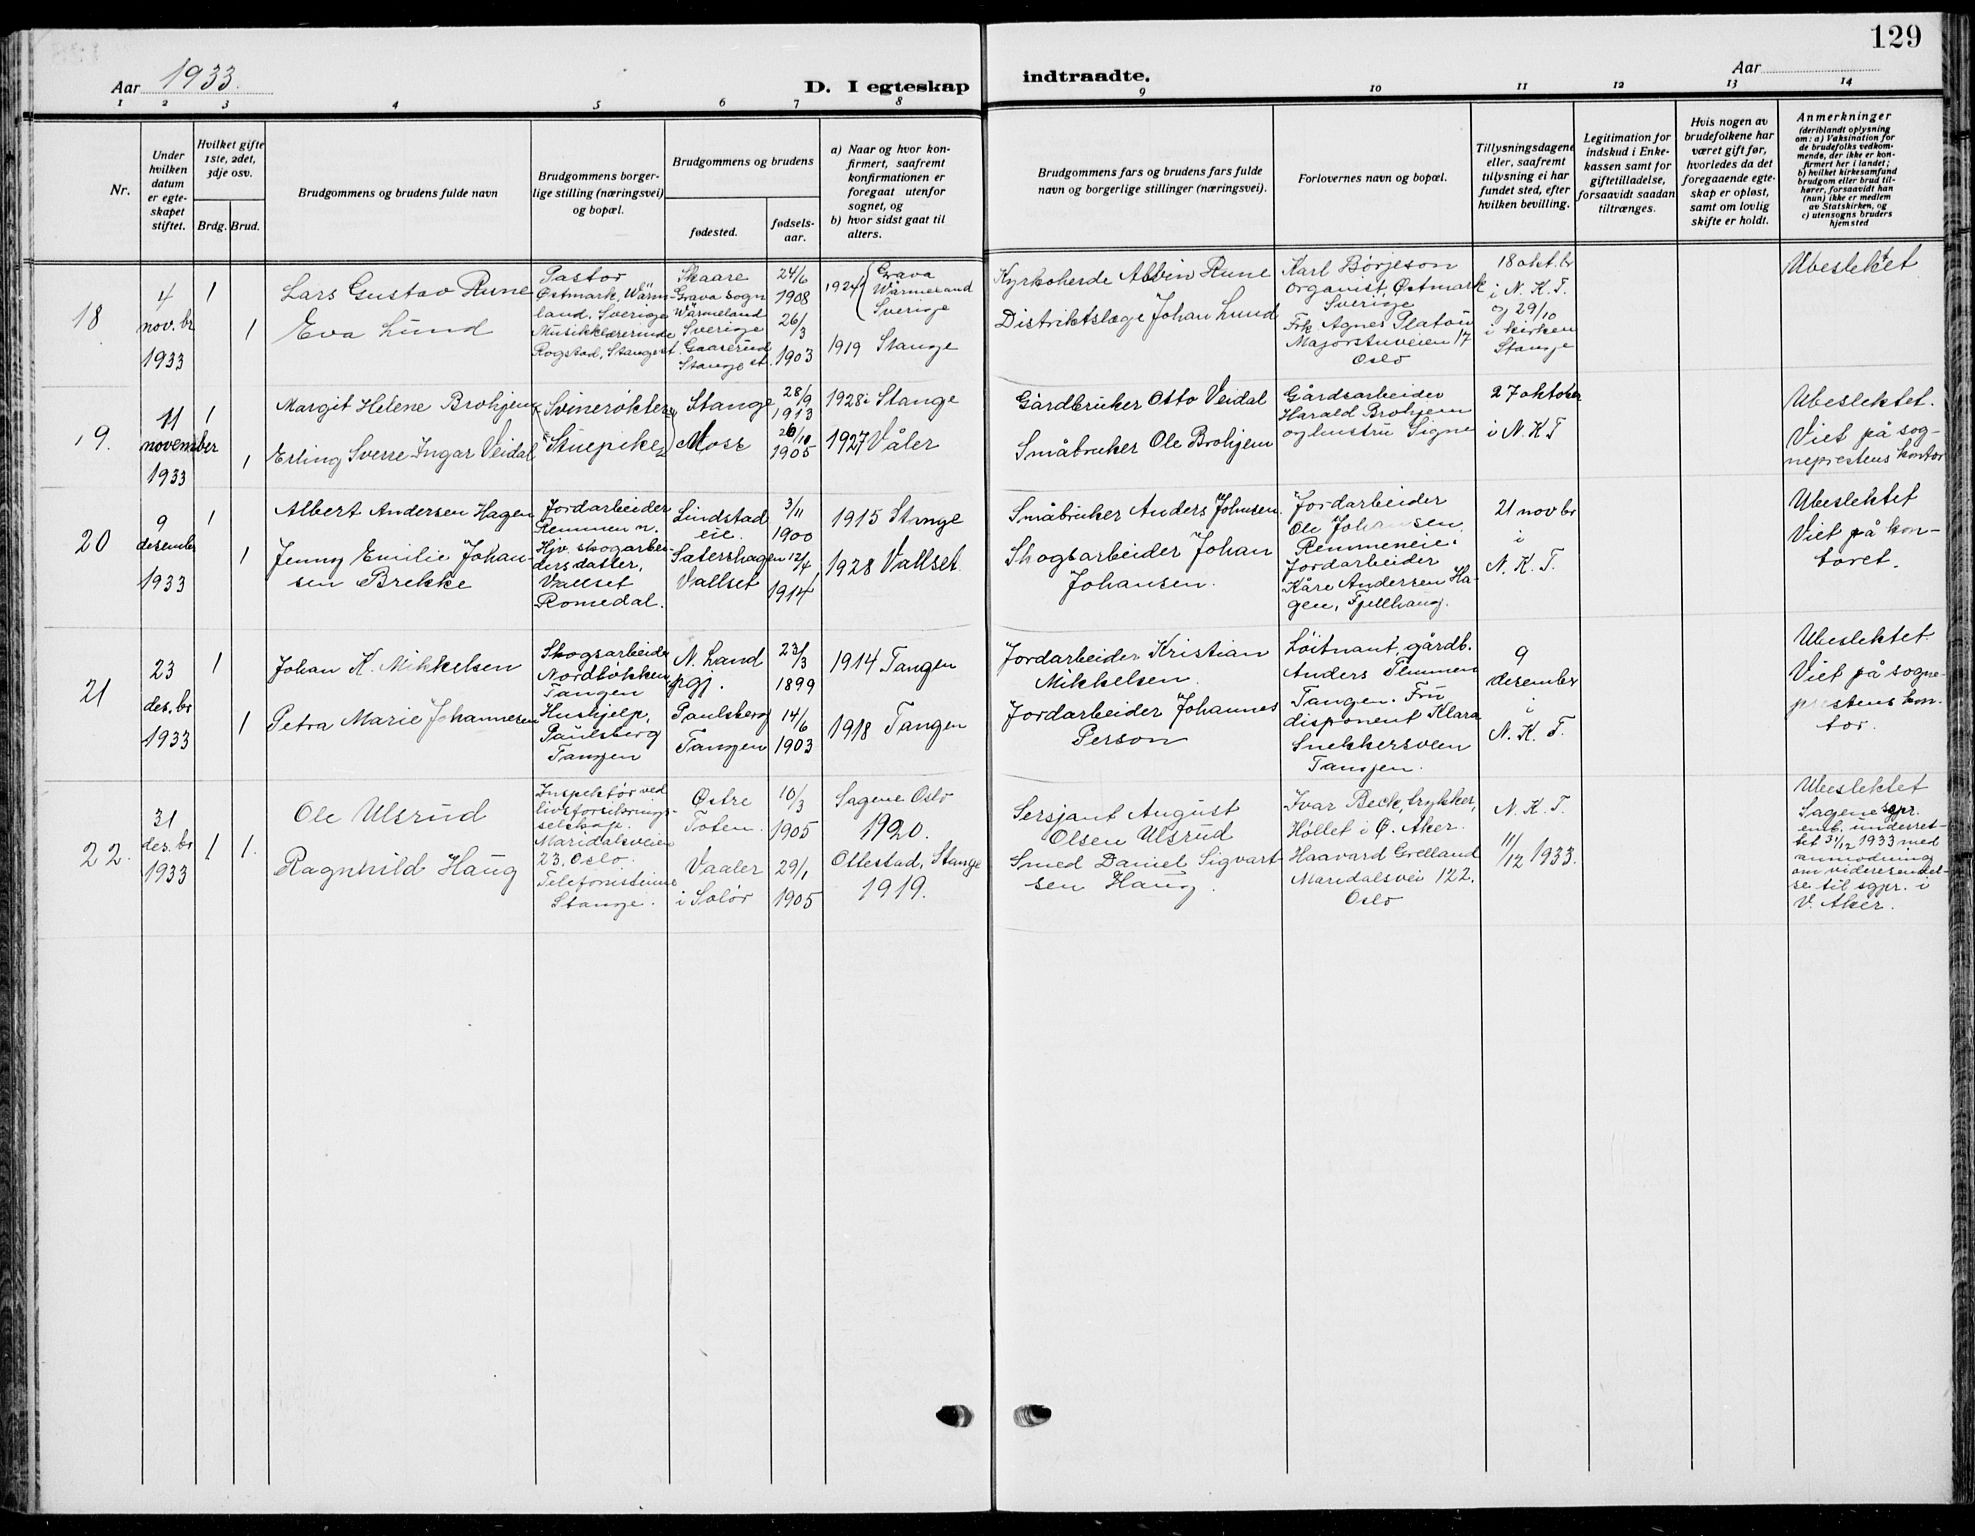 129
Aar 1933.
D. I egteskap
indtraadte.
Aar
1 2 3 4 5 6 7 8
9 10 11 12 13 14
Nr.
Under hvilken datum er egteskapet stiftet.
Hvilket gifte 1ste, 2det, 3dje osv.
Brdg. Brud.
Brudgommens og brudens fulde navn
Brudgommens borgerlige stilling (næringsvei) og bopæl.
Brudgommens og brudens
fødested.
fødselsaar.
a) Naar og hvor konfirmert, saafremt konfirmationen er foregaat utenfor sognet, og
b) hvor sidst gaat til alters.
Brudgommens fars og brudens fars fulde navn og borgerlige stillinger (næringsvei).
Forlovernes navn og bopæl.
Tillysningsdagene eller, saafremt tillysning ei har fundet sted, efter hvilken bevilling.
Legitimation for indskud i Enkekassen samt for giftetilladelse, forsaavidt saadan tiltrænges.
Hvis nogen av brudefolkene har været gift før, hvorledes da det foregaaende egteskap er opløst, samt om lovlig skifte er holdt.
Anmerkninger
(deriblandt oplysning om: a) Vaksination for de brudefolks vedkommende, der ikke er konfirmert her i landet;
b) hvilket kirkesamfund brudgom eller brud tilhører, forsaavidt han (hun) ikke er medlem av Statskirken, og
c) utensogns bruders hjemsted
18
4
nov. br
1933
1
1
Lars Gustav Rune
Eva Lund
Pastor
Østmark, Wärmland, Sverige
Musikklærerinde
Rogstad, Stange st.
Skaare
Grava sogn
Wärmeland
Sverige
Gaaserud
Stange st.
24/6
1908
26/3
1903
1924 Grava
Wärmeland
Sverige
1919 Stange
Kyrkoherde Albin Rune
Distriktslæge Johan Lund
Karl Börjeson
organist, Østmark
Sverige
Frk. Agnes Platou
Majorstuveien 17
Oslo
18 okt. br
i N. K. T.
og 29/10
i kirken
Stange
Ubeslektet
19.
11
november
1933
1
1
Margit Helene Brohjem
Erling Sverre Ingar Veidal
Svinerøkter
Stuepike
Stange
Moss
28/9
1913
26/10
1905
1928 i Stange
1927 Våler
Gårdbruker Otto Veidal
Småbruker Ole Brohjem
Gårdsarbeider
Harald Brohjem
og hustru Signe
27 oktober
i N. K. T
Ubeslektet.
Viet på sog-
neprestens kontor
20
9
desember
1933
1
1
Albert Andersen Hagen
Jenny Emilie Johan-
sen Brekke
Jordarbeider
Remmen n.
Hjv. skogarbei-
ders datter,
Vallset
Romedal.
Lindstad
eie.
Satershagen
Vallset
3/11
1900
12/4
1914
1915 Stange
1928 Vallset.
Småbruker Anders Johnsen
Skogsarbeider Johan
Johansen.
Jordarbeider
Ole Johansen
Remmeneie.
Jordarbeider
Kåre Andersen Ha-
gen, Fjellhaug.
21 nov br
i
N. K. T.
Ubeslektet
Viet på kon-
toret.
21
23
des. br
1933
1
1
Johan K. Mikkelsen
Petra Marie Johannesen
Skogsarbeider
Nordbøkken
Tangen
Hushjelp,
Paulsberg
Tangen
N. Land
pgj.
Paulsberg
Tangen
23/3
1899
14/6
1903
1914 Tangen
1918 Tangen
Jordarbeider Kristian
Mikkelsen.
Jordarbeider Johannes
Person
Löitnant, gårdb.
Anders Flemmen
Tangen. Fru
disponent Klara
Snekkersveen
Tangen.
9
desember
i
N. K. T.
Ubeslektet
Viet på sogne-
prestens kon-
tor.
22.
31
des. br
1933
1
1.
Ole Ulsrud
Ragnhild Haug
Inspektør ved
livsforsikrings-
selskap.
Maridalsveien
23, Oslo.
Telefonistinne
Stange.
Østre
Toten.
Vaaler
i Solør
10/3
1905
29/1
1905
Sagene Oslo
1920.
Ottestad, Stange
1919.
Sersjant August
Olsen Ulsrud
Smed Daniel Sigvart-
sen Haug.
Ivar Beck, trykker,
Høllet i Ø. Aker.
Haavard Grelland
Maridalsvei 122.
Oslo
N. K. T.
11/12 1933.
Ubeslektet
Sagene sgpr.
emb. underret-
tet 31/12 1933 med
anmodning
om videresendel-
se til sgpr. i
V. Aker.